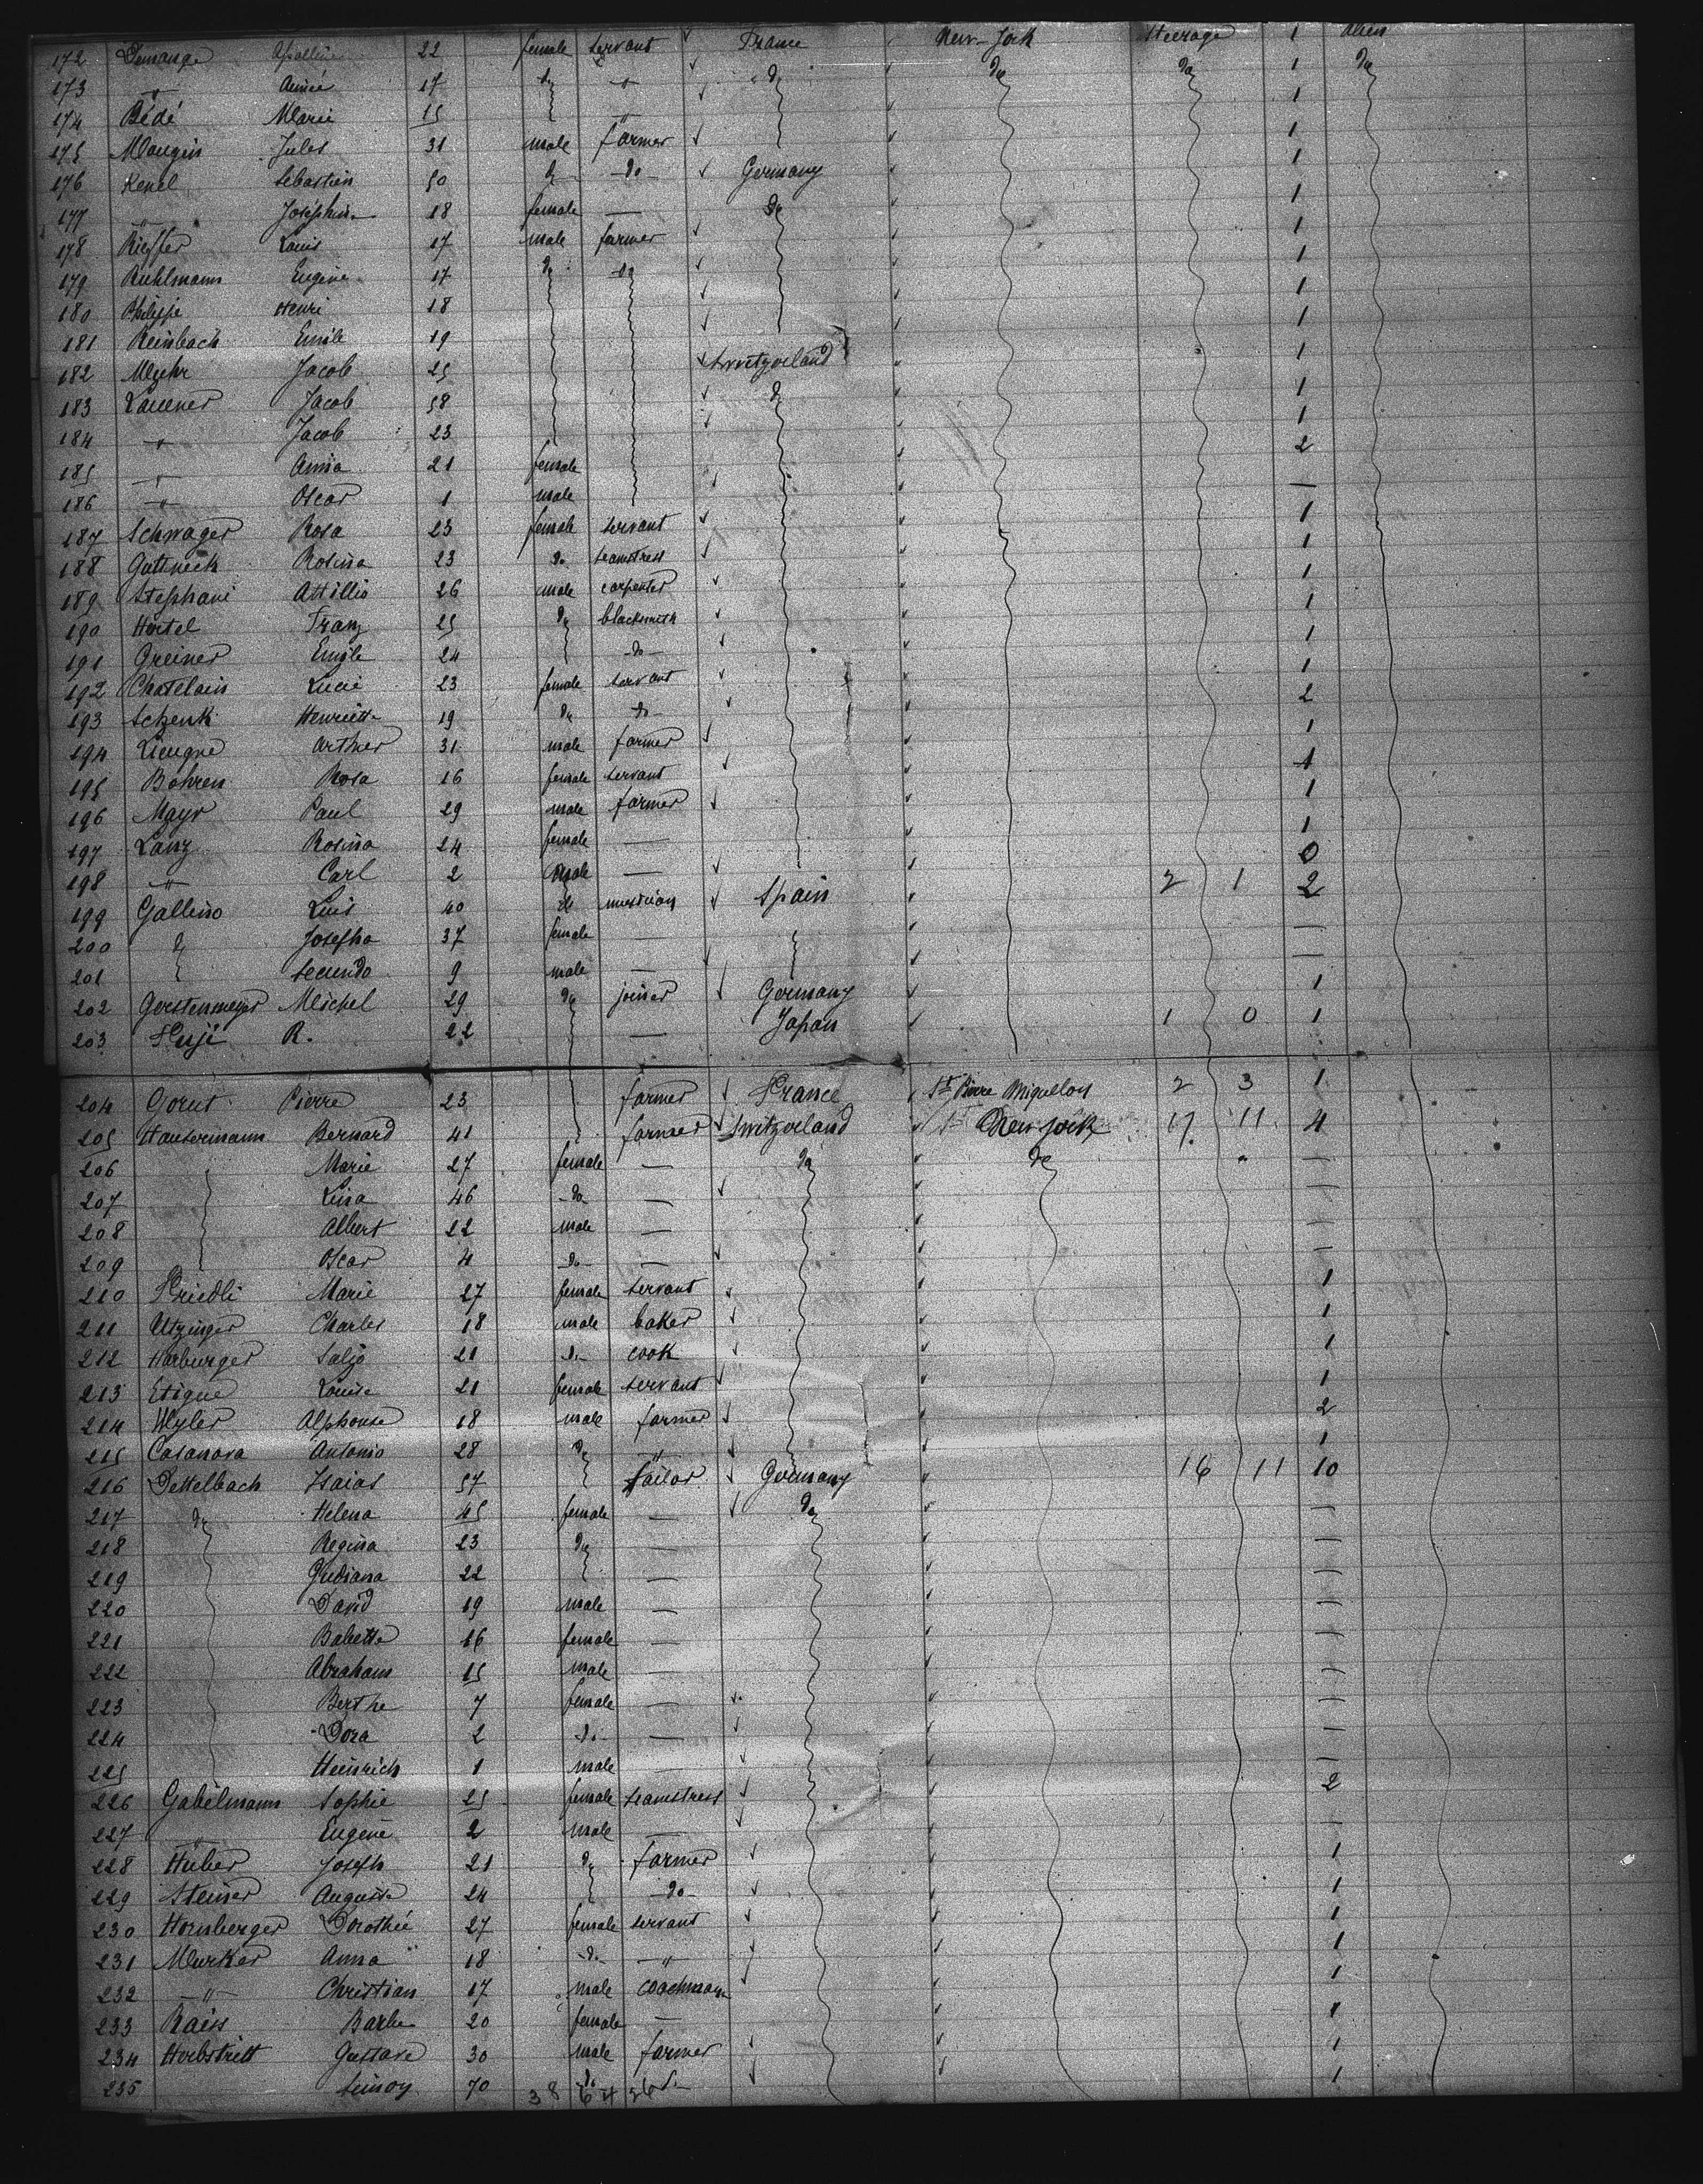 172 Demange Apolline 22 female servant France New-York Steerage 1 Alien
173 " Aimée 17 do " do do do 1 do
174 Bédé Marie 15 " 1
175 Mougin Jules 31 male farmer 1
176 Henel Sebastien 50 do -do- Germany 1
177 " Joséphine 18 female — do 1
178 Kieffer Louis 17 male farmer 1
179 Ruhlmann Eugène 17 do do 1
180 Philippe Henri 18 1
181 Reinbach Emile 19 1
182 Jacob 25 Switzerland 1
183 Lauener Jacob 58 do 1
184 " Jacob 23 1
185 " Anna 21 female 2
186 " Oscar 1 male —
187 Schwager Rosa 23 female servant 1
188 Rosina 23 do seamstress 1
189 Stephani Attillio 26 male carpenter 1
190 Hertel Franz 25 do blacksmith 1
191 Greiner Emile 24 -do- 1
192 Chatelain Lucie 23 female servant 1
193 Schenk Henriette 19 do do 2
194 Lieugne Arthur 31 male farmer 1
195 Bohren Rosa 16 female servant 1
196 Mayr Paul 29 male farmer 1
197 Lanz Rosina 24 female — 1
198 " Carl 2 male — 0
199 Gallino Luis 40 do musician Spain 2 1 2
200 do Josepha 37 female — —
201 Secundo 9 male — —
202 Gerstenmeyer Michel 29 do joiner Germany 1
203 Fuji R. 22 — Japan 1 0 1
204 Gorut Pierre 23 farmer France St Pierre Miquelon 2 3 1
205 Hautermann Bernard 41 farmer Switzerland New York 17 11 4
206 Marie 27 female — do do —
207 Lina 46 -do- — —
208 Albert 22 male — —
209 Oscar 4 -do- — —
210 Friedli Marie 27 female servant 1
211 Utzinger Charles 18 male baker 1
212 Harburger Saly 21 do cook 1
213 Etique Louise 21 female servant 1
214 Wyler Alphonse 18 male farmer 2
215 Casanova Antonio 28 do " 1
216 Dettelbach Isaias 57 tailor Germany 16 11 10
217 do Helena 45 female — do —
218 Regina 23 do — —
219 22 — —
220 David 19 male — —
221 Babette 16 female — —
222 Abraham 15 male — —
223 Berthe 7 female — —
224 Dora 2 do — —
225 Heinrich 1 male —
226 Gabelmann Sophie 25 female seamstress 2
227 " Eugene 2 male — —
228 Huber Joseph 21 do farmer 1
229 Steiner Auguste 24 -do- 1
230 Hornberger Dorothée 27 female servant 1
231 Murker Anna 18 -do- " 1
232 " Christian 17 male coachman 1
233 Raiss Barbe 20 female — 1
234 Herbstritt Gustave 30 male farmer 1
235 70 do 1
38 64